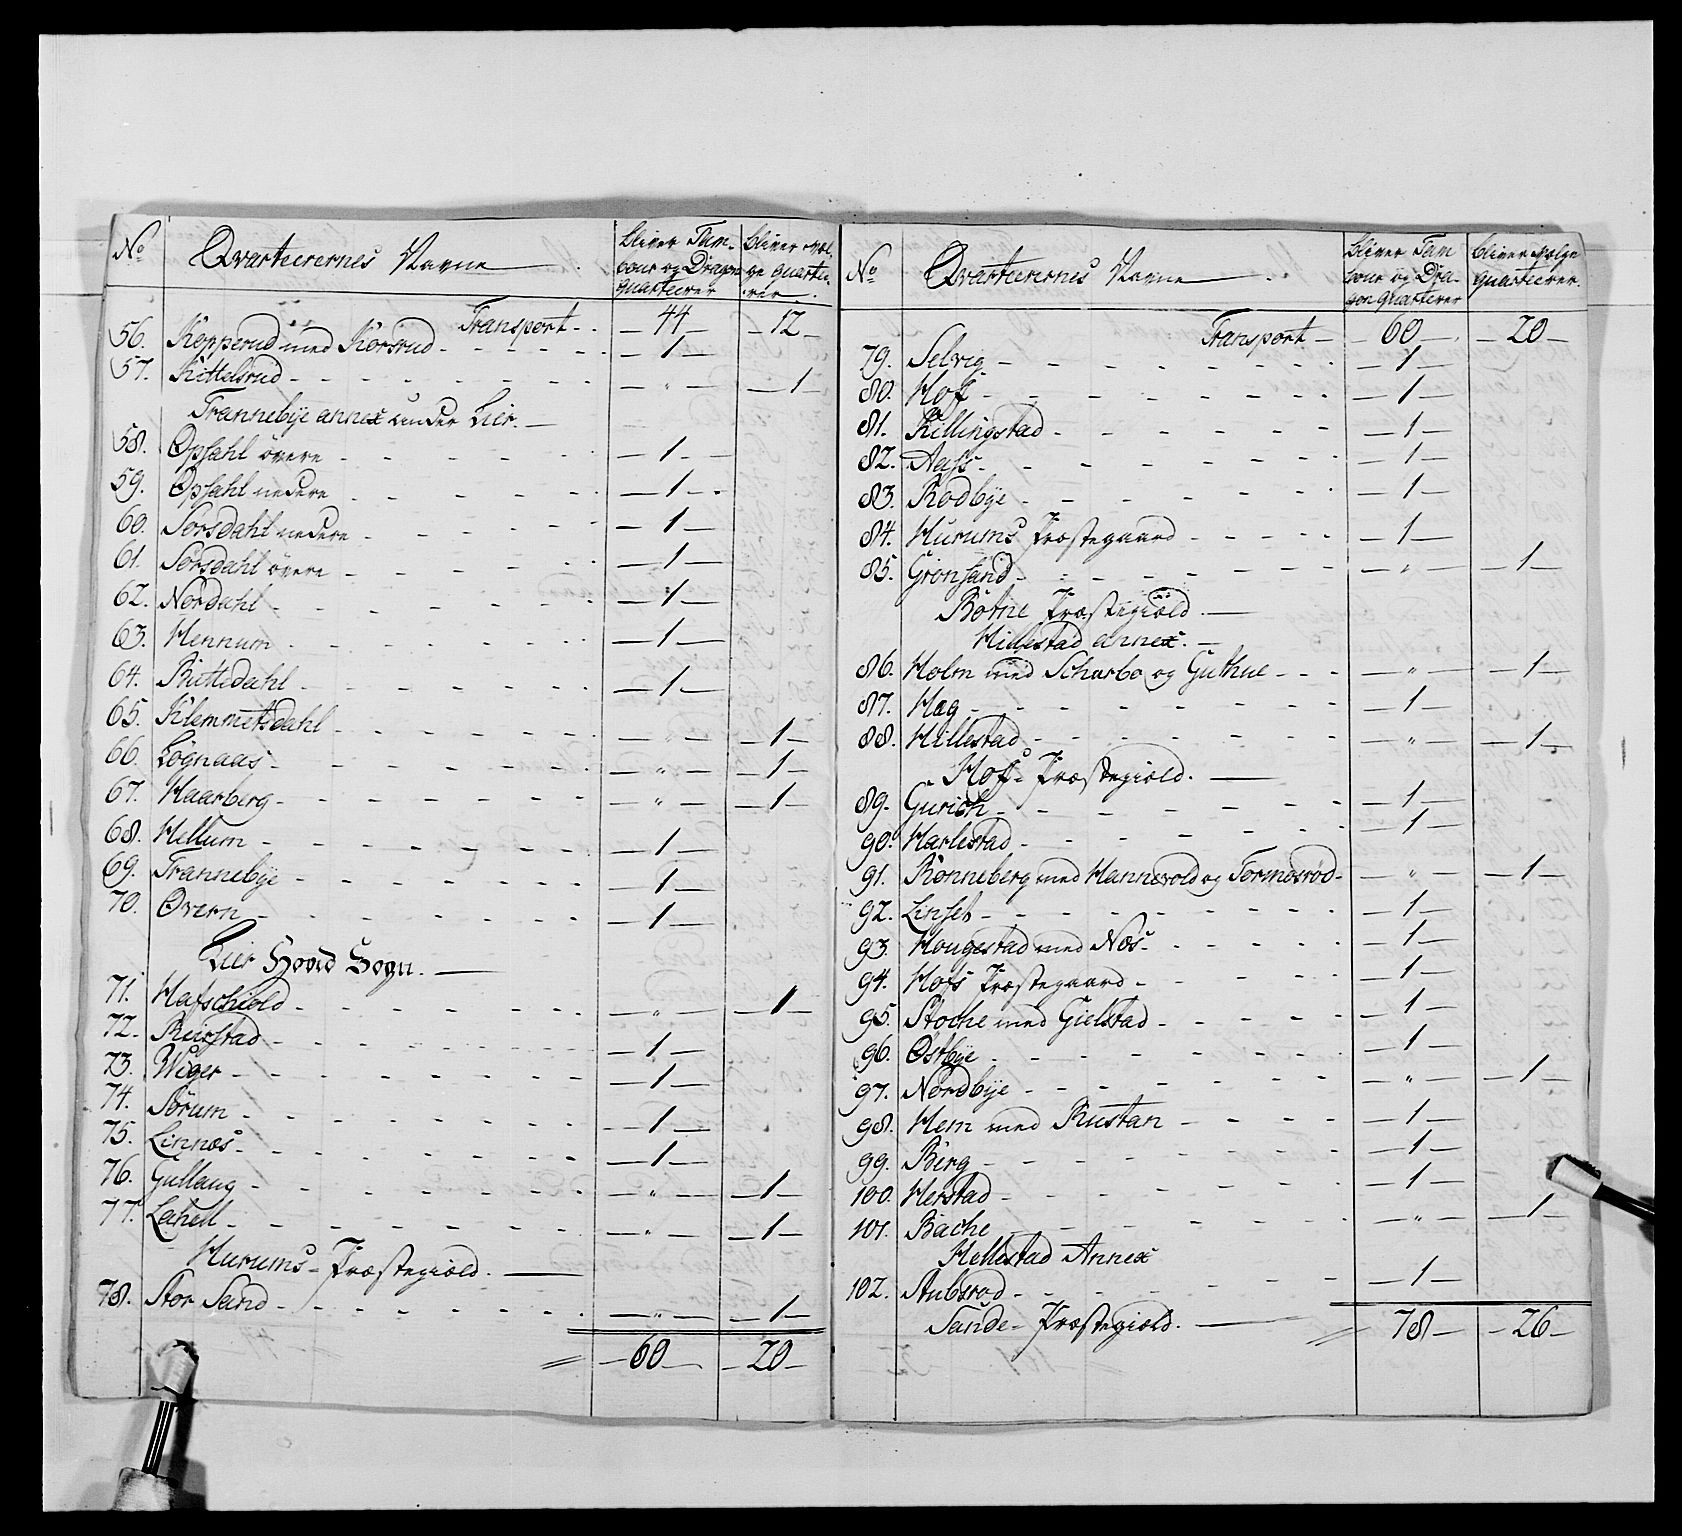 No Qvarteerernes Navne bliver Tam- bour og Dragon quarteerer bliver vælge quarteerer.
Transport - 44 - 12 -
56. Kopperud med Korsrud - 1 -
57. Kittelsrud - " - 1
Trannebye annex under Lier.
58. Opsahl övere - 1 -
59. Opsahl nedere - 1 -
60. Sorsdahl nedere - 1 -
61. Sörsdahl övere - 1 -
62. Nordahl - 1 -
63. Hennum - 1 -
64. Büttedahl - 1 -
65. Klemmetsdahl - " - 1 -
66. Lögnaas - " - 1 -
67. Haarberg - " - 1 -
68. Hellum - 1 -
69. Trannebye - 1 -
70. Overn - 1 -
Lier Hoved Sogn.
71. Hafschiold - " - 1 -
72. Reirstad - 1 -
73. Wiger - 1 -
74. Sörum - 1 -
75. Linnæs - 1 -
76. Gullaug - " - 1 -
77. Lahell - " - 1 -
Hurums Præstegiæld.
78. Stor Sand - " - 1 -
60 - 20 -
No Qvarteerernes Navne bliver Tam bour og Dra- gon quarterer bliver vælge quarteerer.
Transport - 60 - 20 -
79. Selvig - 1 -
80. Hof - 1 -
81. Killingstad - 1 -
82. Aass - 1 -
83. Rodbye - 1 -
84. Hurums Præstegaard - 1 -
85. Gronsand - " - 1 -
Botne Præstegiæld.
Hillestad annex.
86. Holm med Scharbo og Guthue - " - 1 -
87. Hæg - 1 -
88. Hillestad - " - 1 -
Hofs Præstegiæld.
89. Gurich - 1 -
90. Harlestad - 1 -
91. Rönneberg med Hannevold og Tormosröd - " - 1 -
92. Linset - 1 -
93. Hougestad med Næs - 1 -
94. Hofs Præstegaard - 1 -
95. Stoche med Gielstad - 1 -
96. Östbye - 1 -
97. Nordbye - " - 1 -
98. Hem med Rustan - 1 -
99. Berg - 1 -
100. Herstad - 1 -
101. Bache - " - 1 -
Hellestad Annex
102. Stubsrod - 1 -
Sande Præstegiæld. 78 - 26 -